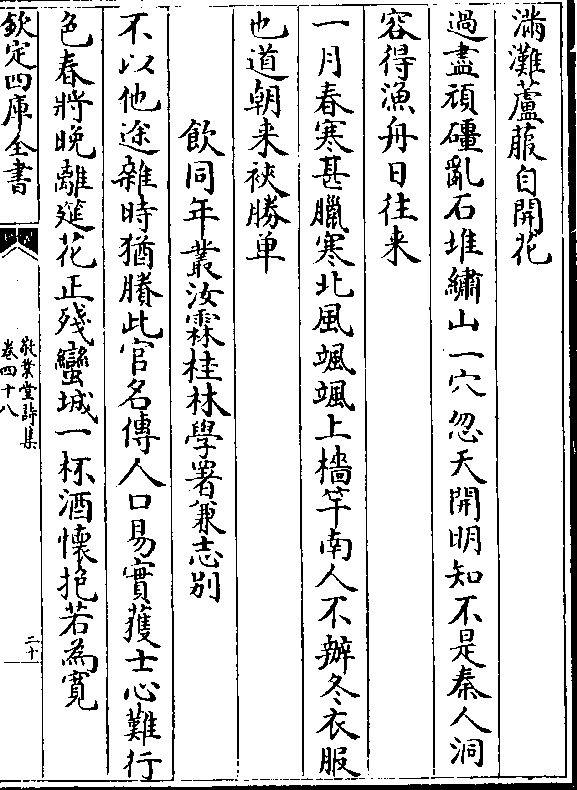 滿灘蘆菔自開花
過盡頑礓亂石堆繡山一穴忽天開明知不是秦人洞
容得漁舟日往来
一月春寒甚臘寒北風颯颯上檣竿南人不辦冬衣服
也道朝来裌勝单
飲同年叢汝霖桂林學署兼志别
不以他途雜時猶賸此官名傳人口易實獲士心難行
色春將晚離筵花正殘蠻城一杯酒懷抱若為寬
欽定四庫全書
敬業堂詩集
卷四十八
二十